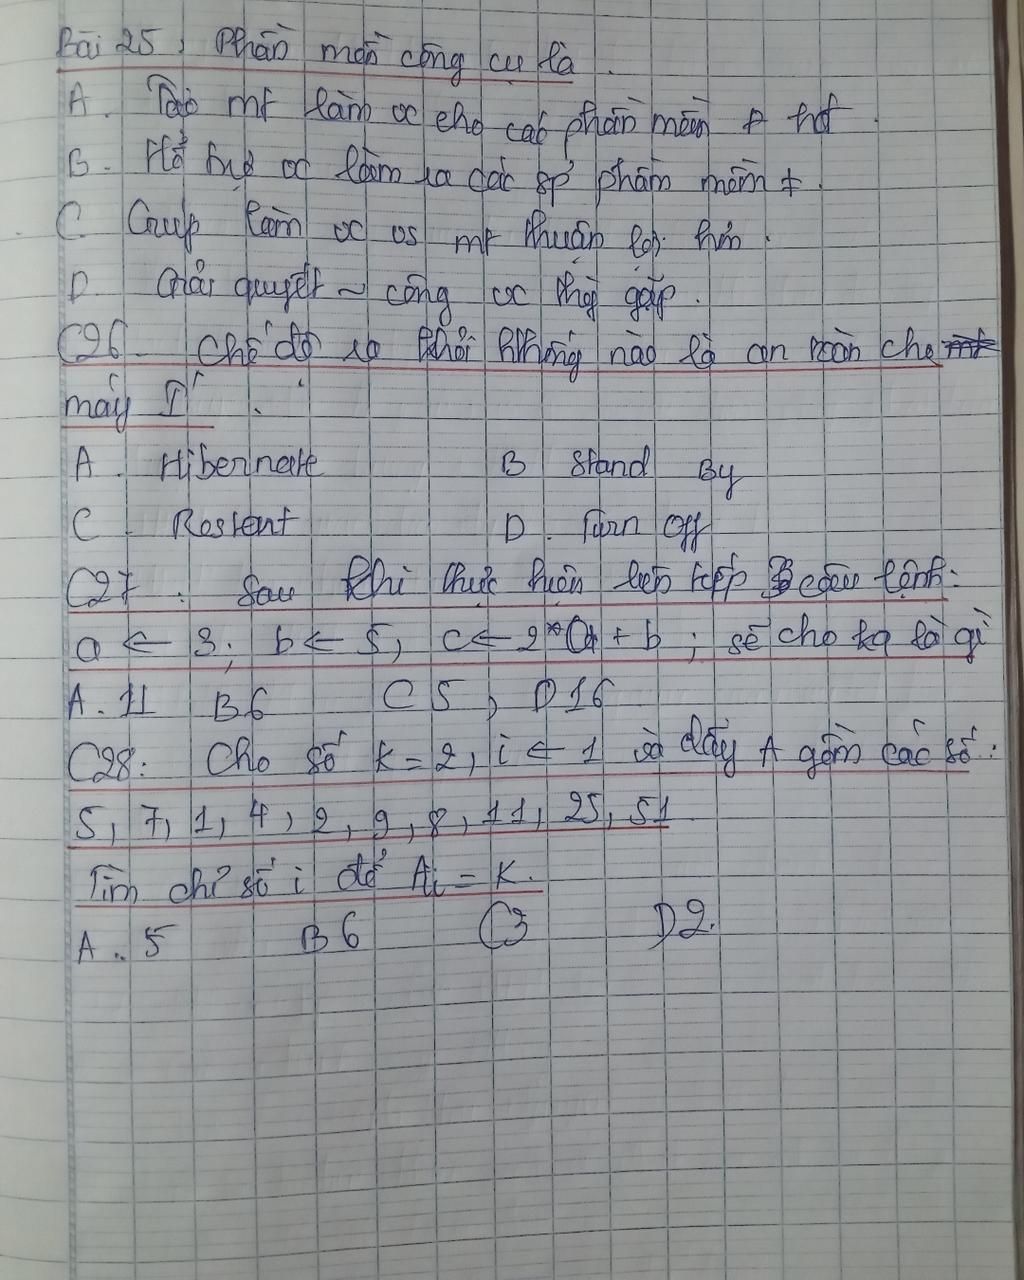 Bài 25: Phần mền công cụ là.
A. Tạo mt làm vc cho các phần mền # hđ.
B. Hỗ trợ vc làm ra các sp' phần mềm #.
C Giúp làm vc vs mt thuận lợi hơn.
D. Giải quyết ~ công vc thg gặp.
C26 Chế độ ra khỏi hthống nào là an toàn cho
máy T'.
A. Hibernate B Stand By
C. Restart D. Turn Off
C27. Sau khi thực hiện liên tiếp 3 câu lệnh:
a ← 3; b ← 5, c ← 2*a + b; sẽ cho kq là gì
A. 11 B 6 C 5, D 16
C28: Cho số k = 2, i ← 1 và dãy A gồm các số:
5, 7, 1, 4, 2, 9, 8, 11, 25, 51
Tìm chỉ số i để Ai = K.
A. 5 B 6 C 3 D 2.